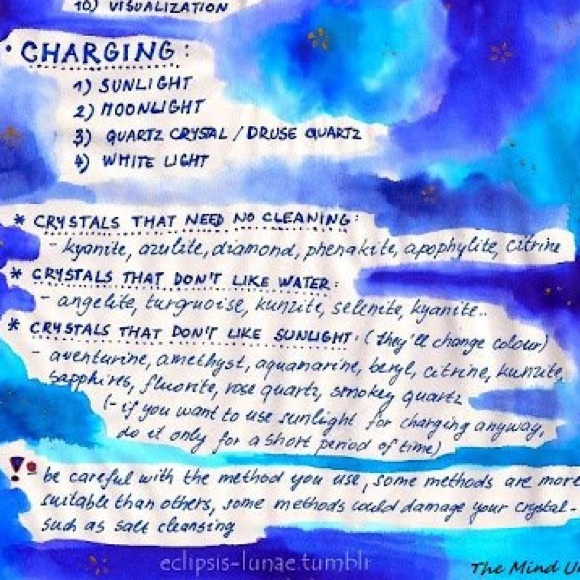 10) VISUALIZATION
• CHARGING:
1) SUNLIGHT
2) MOONLIGHT
3) QUARTZ CRYSTAL / DRUSE QUARTZ
4) WHITE LIGHT
* CRYSTALS THAT NEED NO CLEANING:
- kyanite, azulite, diamond, phenakite, apophylite, citrine
* CRYSTALS THAT DON'T LIKE WATER:
- angelite, turquoise, kunzite, selenite, kyanite..
* CRYSTALS THAT DON'T LIKE SUNLIGHT: (they'll change colour)
- aventurine, amethyst, aquamarine, beryl, citrine, kunzite,
sapphires, fluorite, rose quartz, smokey quartz
(- if you want to use sunlight for charging anyway,
do it only for a short period of time)
! be careful with the method you use, some methods are more
suitable than others, some methods could damage your crystal -
such as salt cleansing
eclipsis-lunae.tumblr
The Mind Un